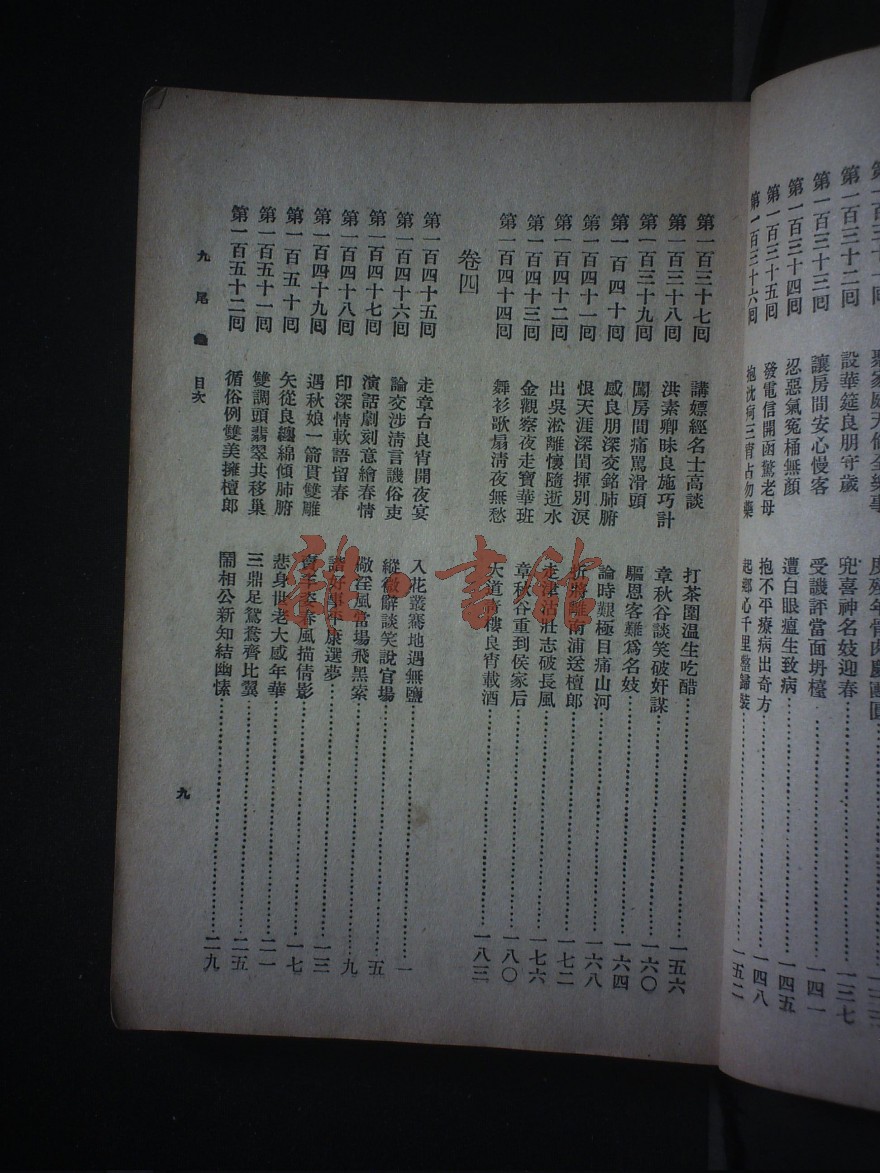 第一百三十二回 設華筵良朋守歲 兜喜神名妓迎春 一三七
第一百三十三回 讓房間安心慢客 受譏評當面坍檯 一四一
第一百三十四回 忍惡氣冤桶無顏 遭白眼瘟生致病 一四五
第一百三十五回 發電信開函驚老母 抱不平療病出奇方 一四八
第一百三十六回 抱沈疴三霄占勿藥 起鄉心千里整歸裝 一五二
第一百三十七回 講嫖經名士高談 打茶圍溫生吃醋 一五六
第一百三十八回 洪素卿昧良施巧計 章秋谷談笑破奸謀 一六〇
第一百三十九回 鬧房間痛罵滑頭 驅恩客難爲名妓 一六四
第一百四十回 感良朋深交銘肺腑 論時艱極目痛山河 一六八
第一百四十一回 恨天涯深閨揮別淚 折將離南浦送檀郎 一七二
第一百四十二回 出吳淞離懷隨逝水 走津沽壯志破長風 一七六
第一百四十三回 金觀察夜走寶華班 章秋谷重到侯家后 一八〇
第一百四十四回 舞衫歌扇淸夜無愁 大道靑樓良宵載酒 一八三
卷四
第一百四十五回 走章台良宵開夜宴 入花叢驀地遇無鹽 一
第一百四十六回 論交涉淸言譏俗吏 縱微辭談笑說官場 五
第一百四十七回 演話劇刻意繪春情 儆淫風當場飛黑索 九
第一百四十八回 印深情軟語留春 諧好事平康選夢 一三
第一百四十九回 遇秋娘一箭貫雙雕 賣手姿春風描倩影 一七
第一百五十回 矢從良纏綿傾肺腑 悲身世老大感年華 二一
第一百五十一回 雙調頭翡翠共移巢 三鼎足鴛鴦齊比翼 二五
第一百五十二回 循俗例雙美擁檀郎 鬧相公新知結幽愫 二九
九尾龜 目次
九